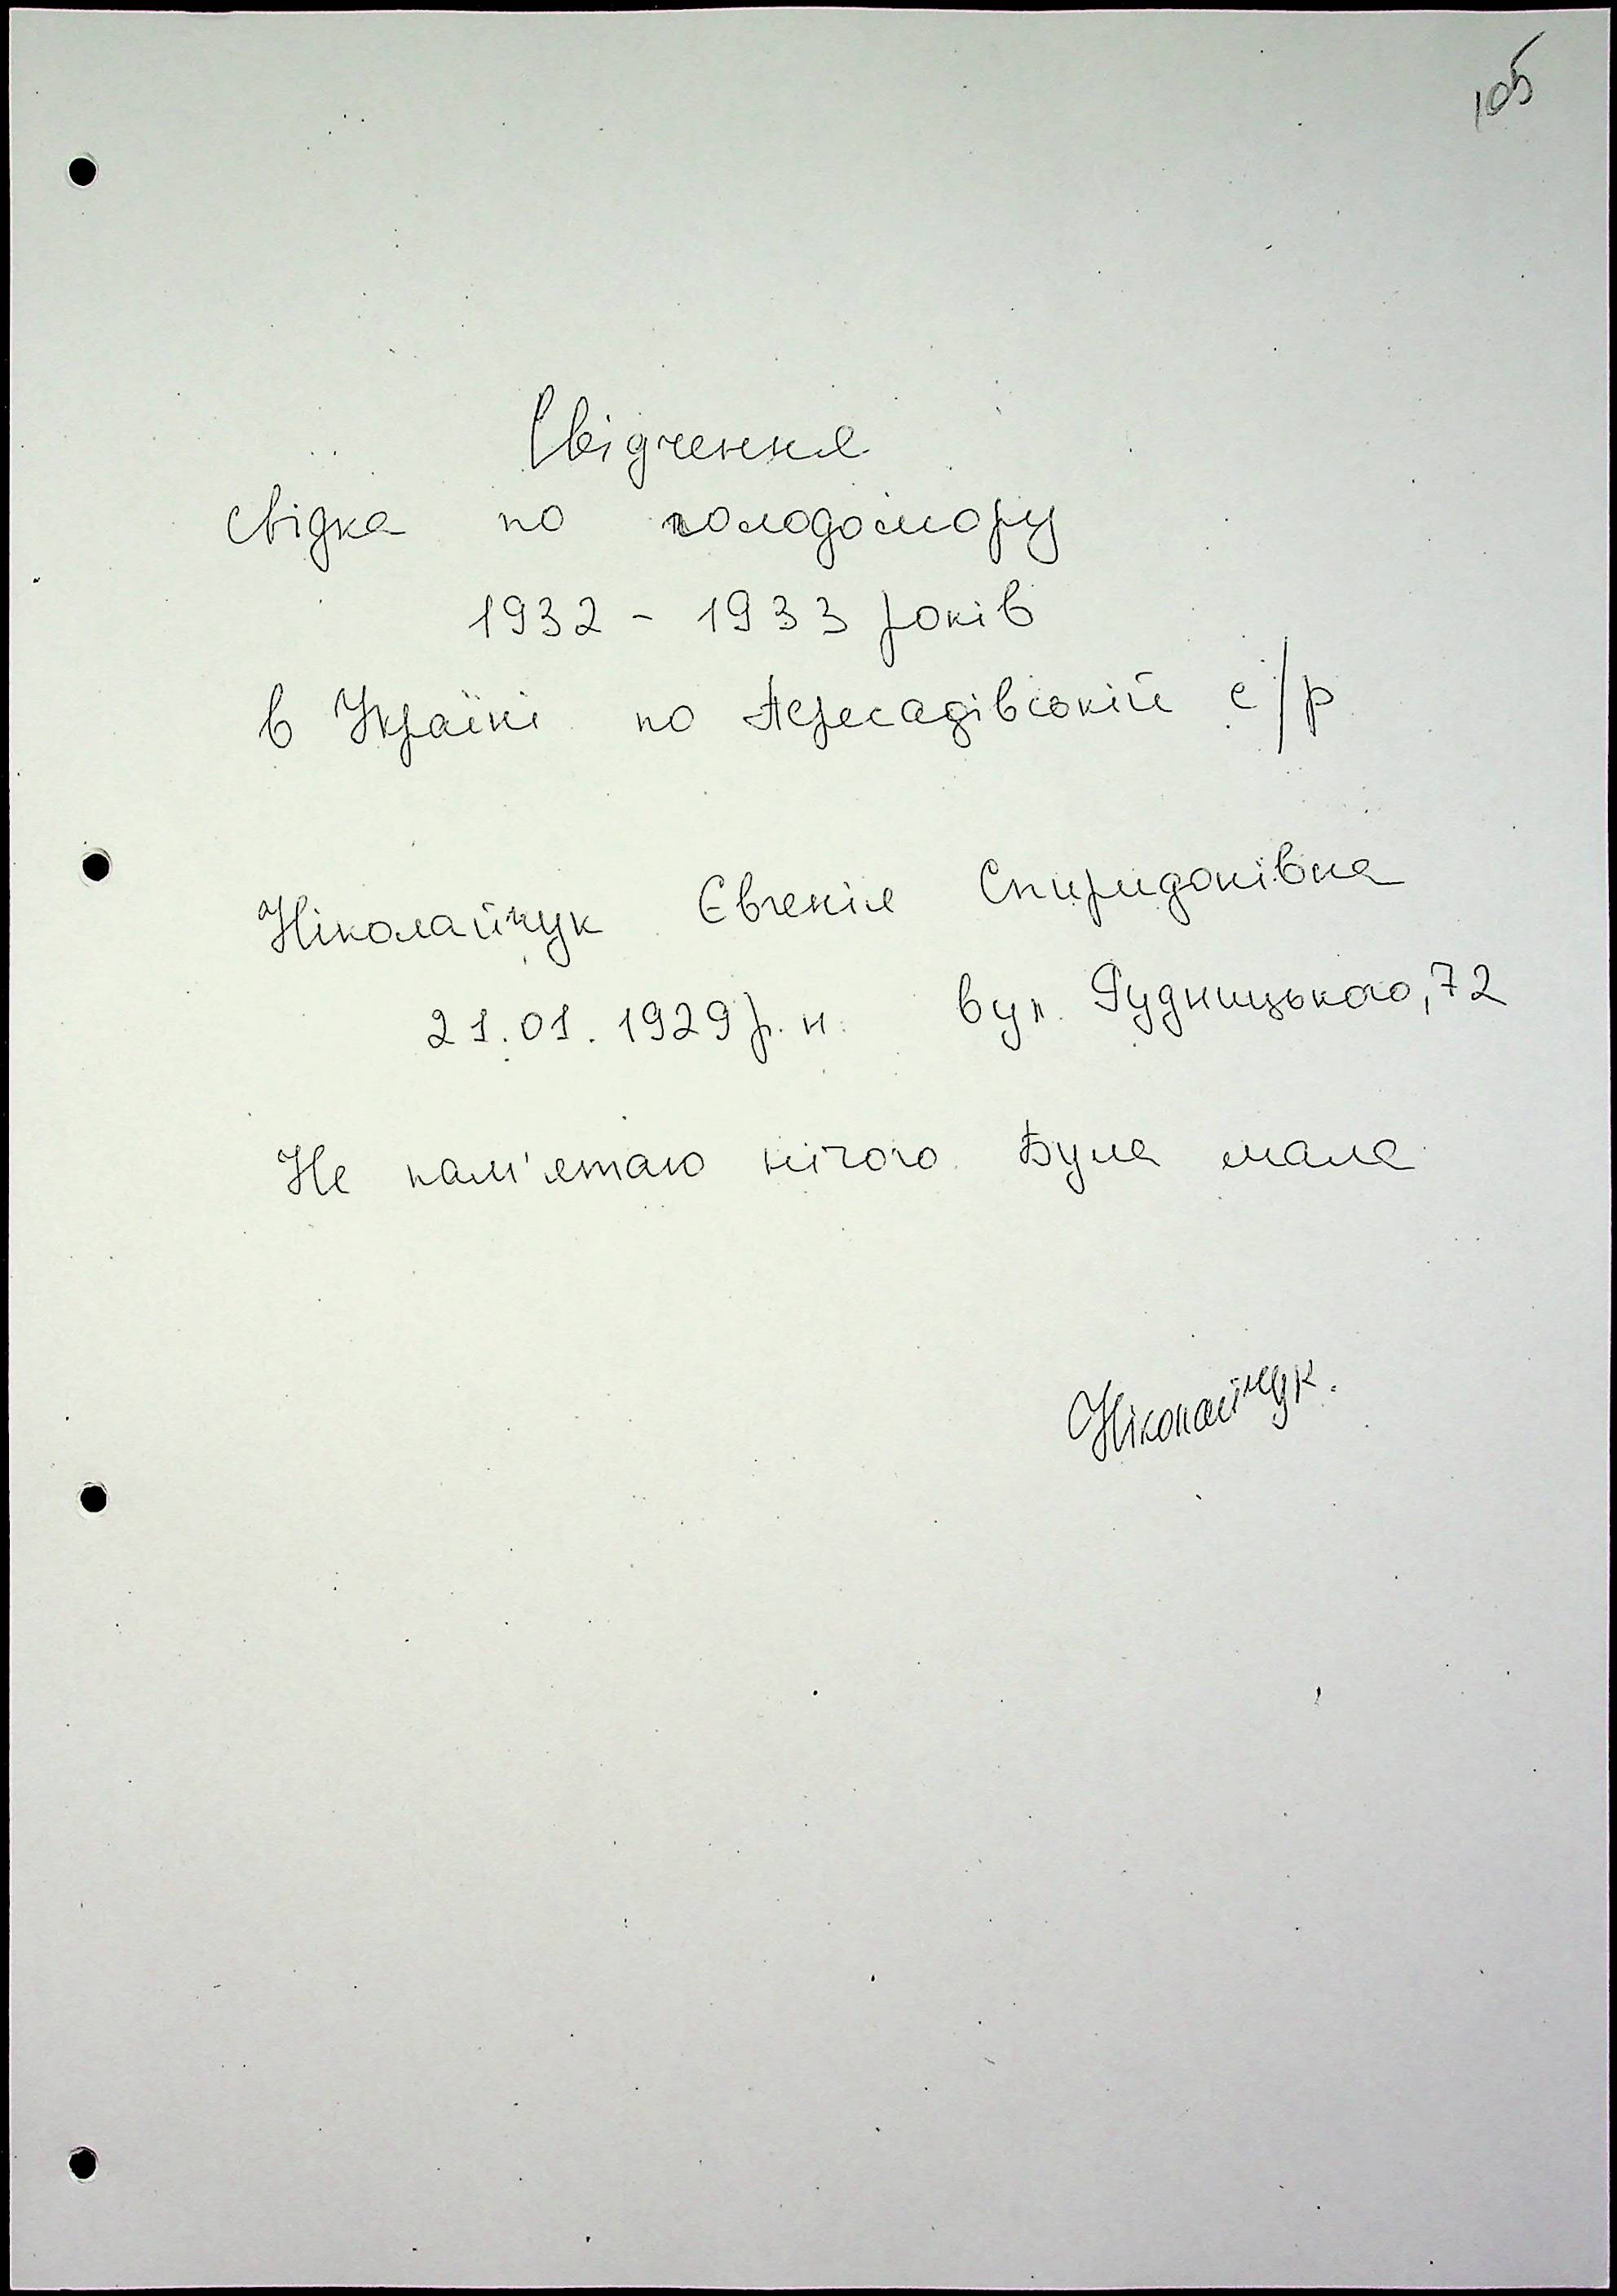 105
Свідчення
свідка по голодомору
1932 - 1933 років
в Україні по Пересадівській с/р
Ніколайчук Євгенія Спиридонівна
21.01.1929 р.н. вул. Рудницького, 72
Не пам'ятаю нічого. Була мала
Ніколайчук.